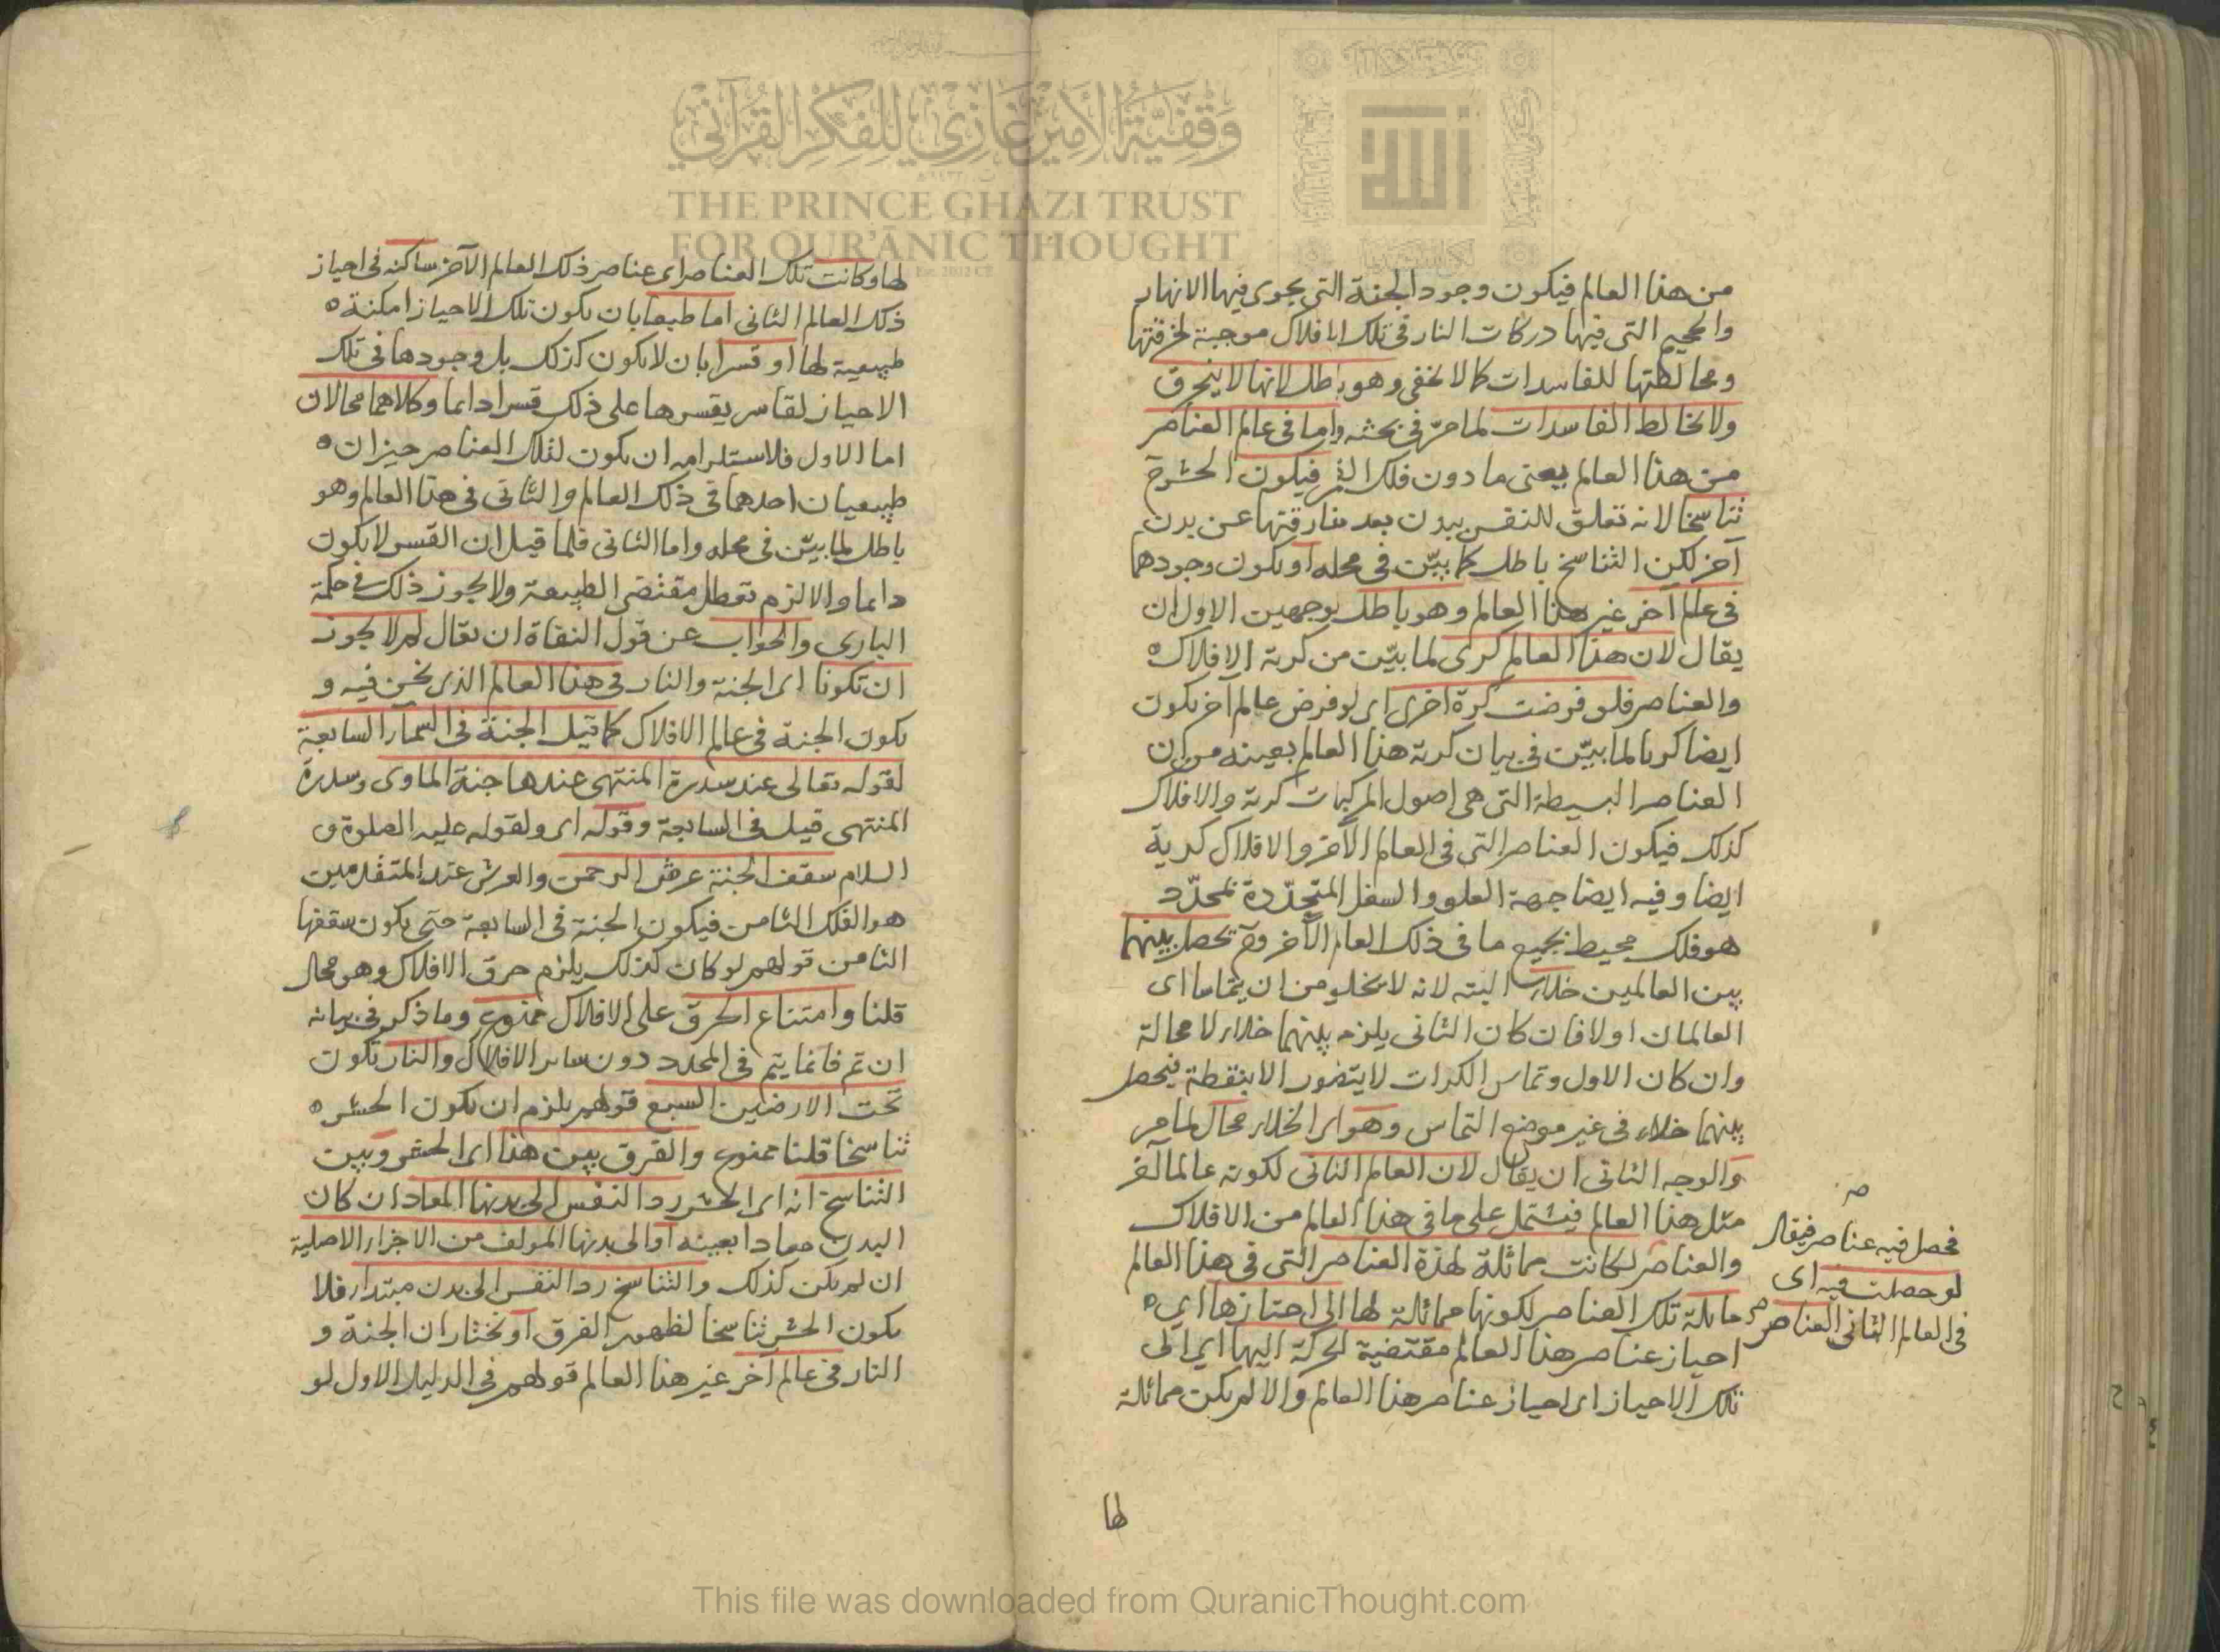 وقفية الأمير غازي للفكر القرآني
THE PRINCE GHAZI TRUST
FOR QUR'ĀNIC THOUGHT
الله
من هذا العالم فيكون وجود الجنة التي يجري فيها الانهار
والجحيم التي فيها دركات النار في تلك الافلاك موجبة لخرقتها
ومخالطتها للفاسدات كما لا يخفى وهو باطل لانها لا ينخرق
ولا يخالط الفاسدات لما مرّ في بحثه واما في عالم العناصر
من هذا العالم يعنى ما دون فلك القمر فيكون الحشر ح
تناسخا لانه تعلق للنفس ببدن بعد مفارقتها عن بدن
آخر لكن التناسخ باطل كما بيّن في محله او يكون وجودهما
في عالم آخر غير هذا العالم وهو باطل بوجهين الاول ان
يقال لان هذا العالم كرى لما بيّن من كرية الافلاك ه
والعناصر فلو فرضت كرة اخرى اى لو فرض عالم آخر يكون
ايضا كريا لما بيّن في بيان كرية هذا العالم بعينه من ان
العناصر البسيطة التي هي اصول المركبات كرية والافلاك
كذلك فيكون العناصر التي في العالم الآخر والافلاك كرية
ايضا وفيه ايضا جهة العلو والسفل المتحدّدة بمحدّد
هو فلك محيط بجميع ما في ذلك العالم الآخر وح يحصل بينهما
بين العالمين خلاء البته لانه لا يخلو من ان يتماسا اى
العالمان اولا فان كان الثاني يلزم بينهما خلاء لا محالة
وان كان الاول وتماس الكرات لا يتصور الا بنقطة فيحصل
بينهما خلاء في غير موضع التماس وهو اى الخلاء محال لما مر
والوجه الثاني ان يقال لان العالم الثاني لكونه عالما آخر
مثل هذا العالم فيشتمل على ما في هذا العالم من الافلاك
والعناصر لكانت مماثلة لهذة العناصر التي في هذا العالم
مايلة تلك العناصر لكونها مماثلة لها الى احيازها اي ه
احياز عناصر هذا العالم مقتضية لحركة اليها اي الى
تلك الاحياز اى احياز عناصر هذا العالم والا لم يكن مماثلة
لها
فحصل فيه عناصر فيقال
لو حصلت فيه اى
في العالم الثاني العناصر
لها وكانت تلك العناصر اى عناصر ذلك العالم الآخر ساكنه في احياز
ذلك العالم الثاني اما طبعا بان يكون تلك الاحياز امكنة ه
طبيعية لها او قسرا بان لا يكون كذلك بل وجودها في تلك
الاحياز لقاسر يقسرها على ذلك قسرا دايما وكلاهما محالان
اما الاول فلاستلزامه ان يكون لتلك العناصر حيزان ه
طبيعيان احدهما في ذلك العالم والثاني في هذا العالم وهو
باطل لما بيّن في محله واما الثاني فلما قيل ان القسر لا يكون
دايما والا لزم تعطل مقتضى الطبيعة ولا يجوز ذلك في حكمة
البارى والجواب عن قول النفاة ان يقال لم لا يجوز
ان تكونا اى الجنة والنار في هذا العالم الذى نحن فيه و
يكون الجنة في عالم الافلاك كما قيل الجنة في السمآء السابعة
لقوله تعالى عند سدرة المنتهى عندها جنة الماوى وسدرة
المنتهى قيل في السابعة وقوله اى ولقوله عليه الصلوة و
السلام سقف الجنة عرش الرحمن والعرش عند المتقدمين
هو الفلك الثامن فيكون الجنة في السابعة حتى يكون سقفها
الثامن قولهم لو كان كذلك يلزم خرق الافلاك وهو محال
قلنا وامتناع الخرق على الافلاك ممنوع وما ذكر في بيانه
ان تم فانما يتم في المحدد دون ساير الافلاك والنار تكون
تحت الارضين السبع قولهم يلزم ان يكون الحشر ه
تناسخا قلنا ممنوع والفرق بين هذا اى الحشر وبين
التناسخ انه اى الحشر رد النفس الى بدنها المعاد ان كان
البدن معادا بعينه او الى بدنها المولف من الاجزاء الاصلية
ان لم يكن كذلك والتناسخ رد النفس الى بدن مبتداء فلا
يكون الحشر تناسخا لظهور الفرق او نختار ان الجنة و
النار في عالم آخر غير هذا العالم قولهم في الدليل الاول لو
This file was downloaded from QuranicThought.com